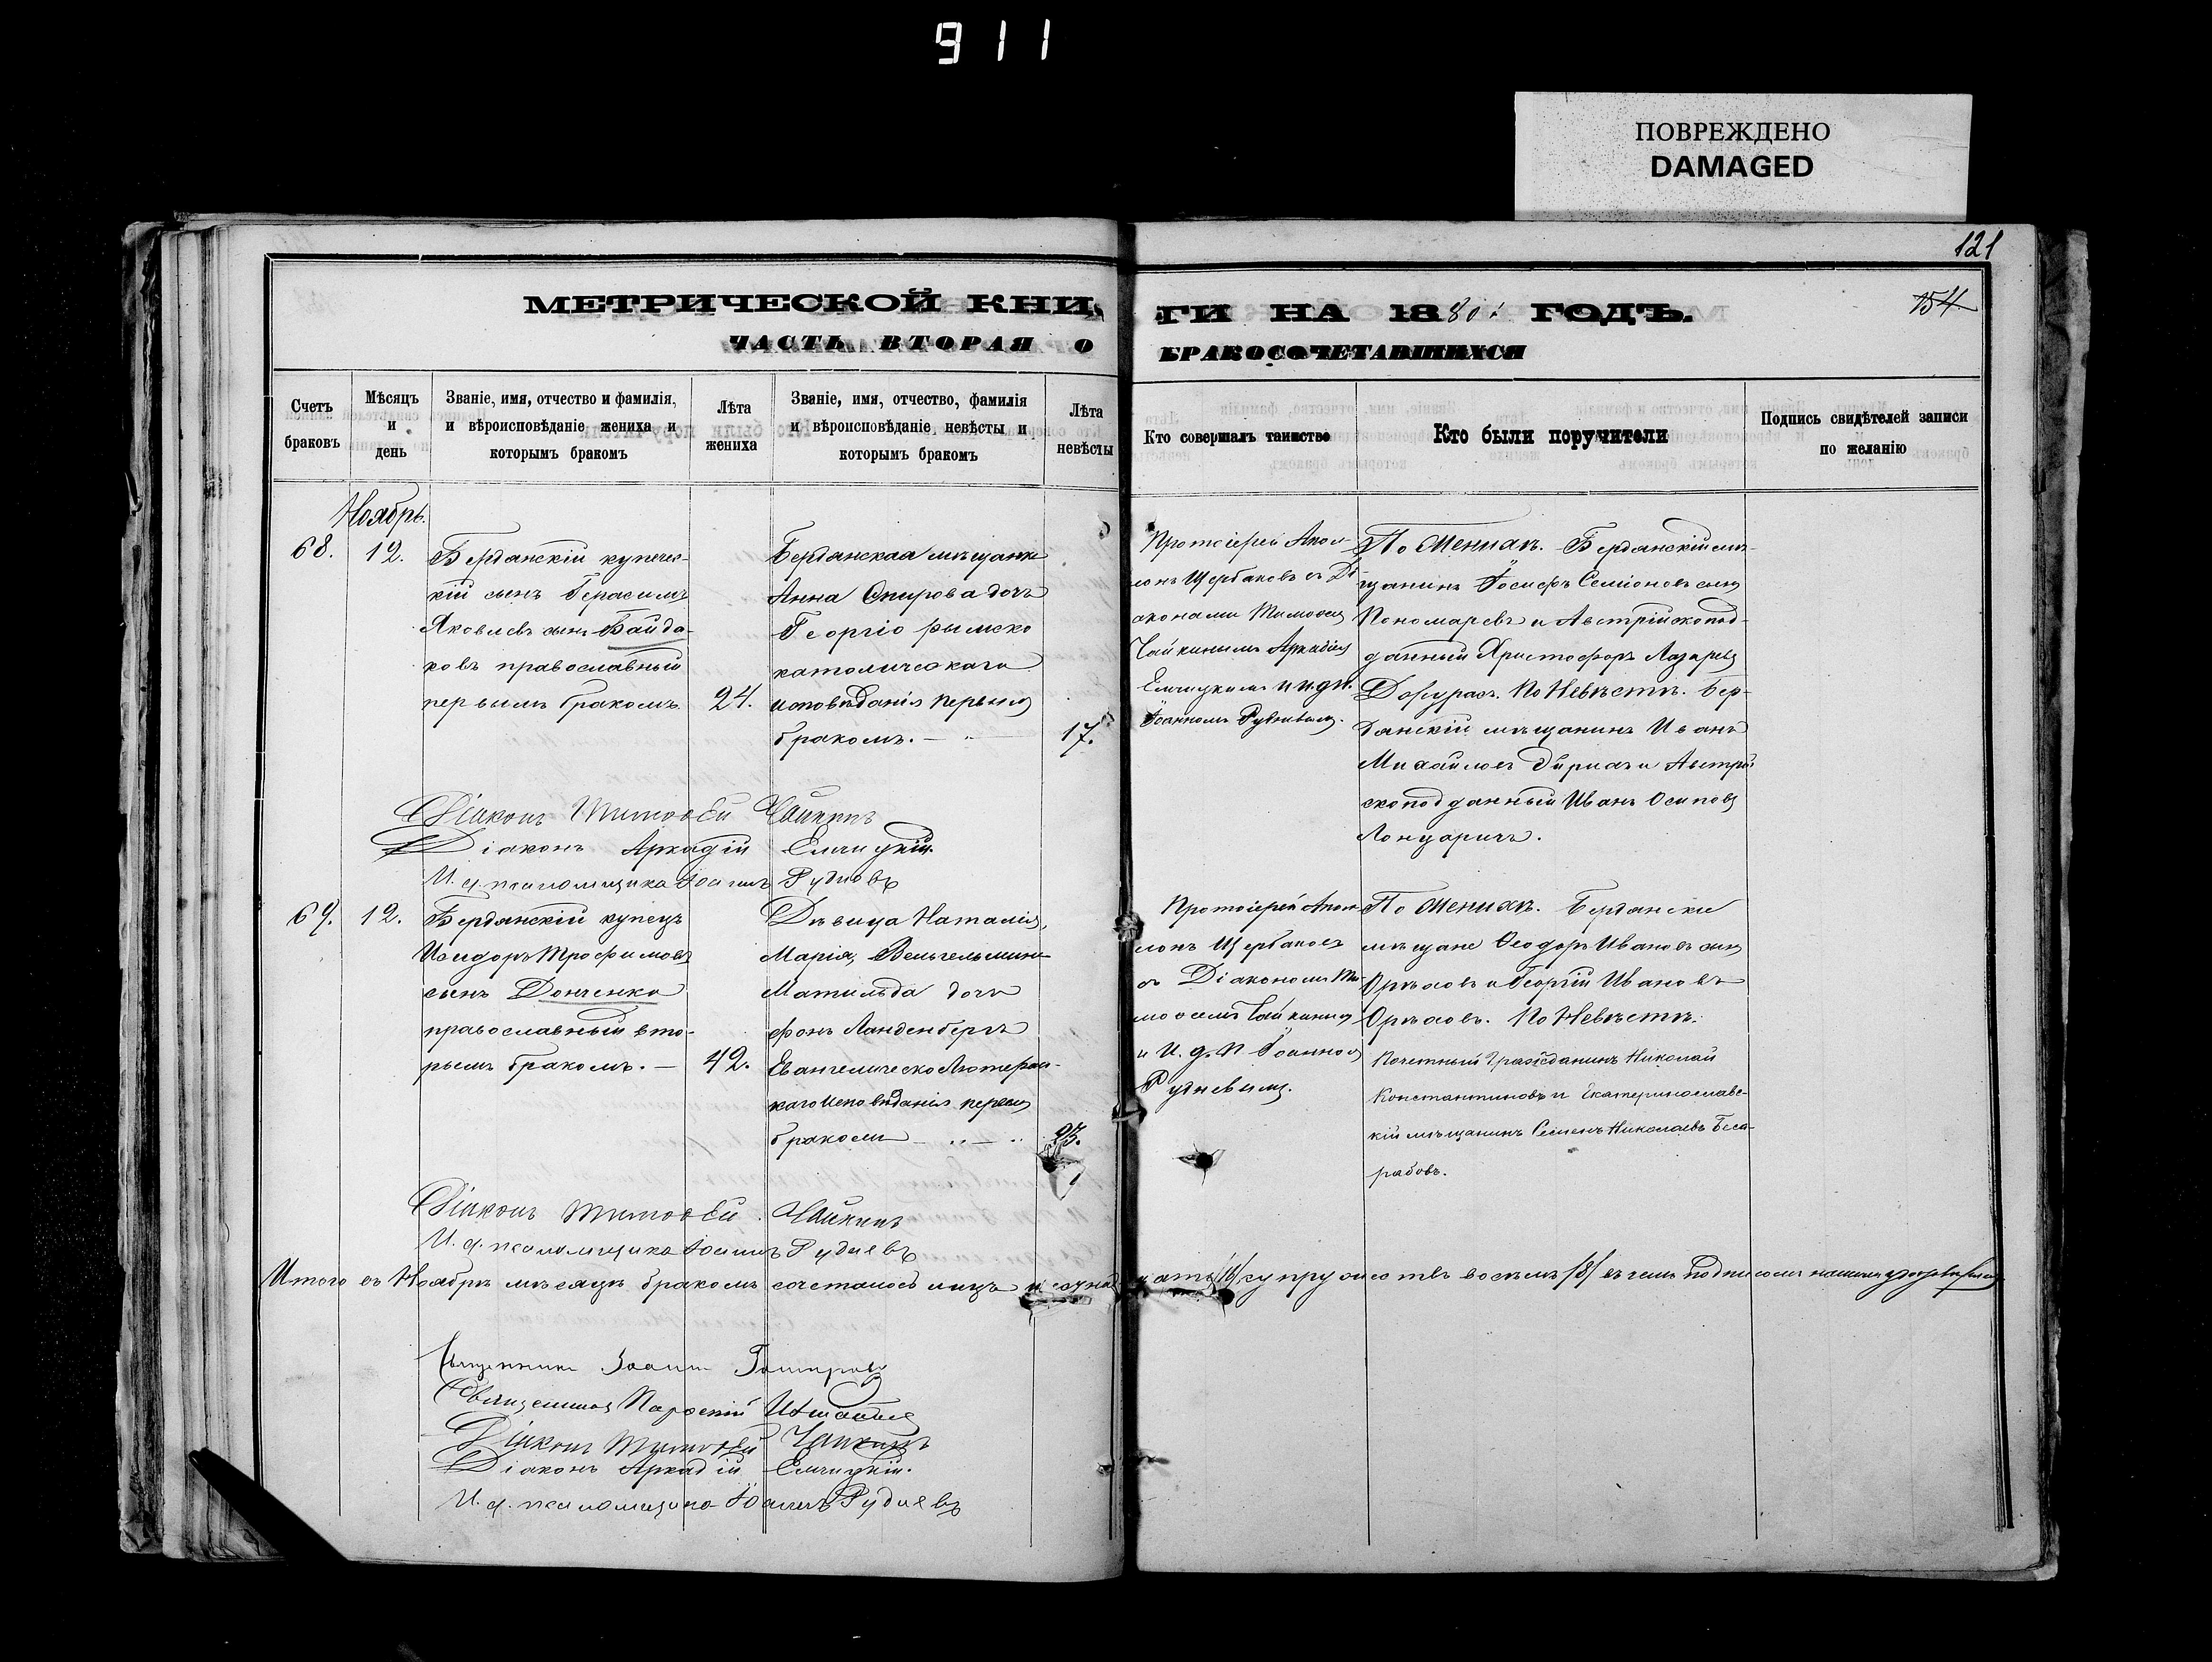 911
ПОВРЕЖДЕНО
DAMAGED
121
154
МЕТРИЧЕСКОЙ КНИ
ГИ НА 1880. ГОДЪ.
ЧАСТЬ ВТОРАЯ О
БРАКОСОЧЕТАВШИХСЯ
Счетъ браковъ
Мѣсяцъ и день
Званіе, имя, отчество и фамилія,
и вѣроисповѣданіе жениха и
которымъ бракомъ
Лѣта жениха
Званіе, имя, отчество, фамилія
и вѣроисповѣданіе невѣсты и
которымъ бракомъ
Лѣта невѣсты
Кто совершалъ таинство
Кто были поручители
Подпись свидѣтелей записи
по желанію
Ноябрь.
68.
12.
Бердянскій купечес-
кій сынъ Герасимъ
Яковлевъ сынъ Байда-
ковъ православный
первымъ бракомъ
24.
Бердянская мѣщанка
Анна Спирова дочь
Георгіо римско
католическаго
исповѣданія первымъ
бракомъ.
17.
Протоіерей Апол-
лонъ Щербаковъ съ Ді-
аконами Тимофеем
Чайкинымъ Аркадіем
и и.д.п.
Іоанномъ Рудневымъ.
По Женихѣ. Бердянскій мѣ-
щанинъ Іосифъ Семіоновъ сынъ
Пономаревъ и Австрійскопод-
данный Христофоръ Лазаревъ
По Невѣстѣ. Бер-
данскій мѣщанинъ Иванъ
Михайловъ и Австрій
скоподданный Иванъ Осиповъ
Діаконъ Тимофей Чайкинъ
Діаконъ Аркадій
И. д. псаломщика Іоаннъ Рудневъ
69.
12.
Бердянскій купецъ
Исидоръ Трофимовъ
сынъ Донченко
православный вто-
рымъ бракомъ.
42.
Дѣвица Наталія,
Марія, Вельгельмина
Матильда дочь
фонъ Ланденбергъ
Евангелическо Лютеран-
каго исповѣданія первым
бракомъ
23.
Протоіерей Апол-
лонъ Щербаковъ
съ Діакономъ Ти-
мофеемъ Чайкиным
и И. д. П Іоанном
Рудневымъ.
По Женихѣ. Бердянскіе
мѣщане Ѳеодоръ Ивановъ сынъ
Орѣховъ и Георгій Ивановъ
Орѣховъ. По Невѣстѣ.
Почетный Гражданинъ Николай
Константиновъ и Екатеринославс-
кій мѣщанинъ Семенъ Николаевъ Бесса-
рабовъ.
Діаконъ Тимофей Чайкинъ
И. д. псаломщика Іоаннъ Рудневъ
Итого въ Ноябрѣ мѣсяцѣ бракомъ сочеталось лицъ супружествъ восемь /8/ въ чемъ подписомъ нашимъ
Священникъ Іоаннъ
Священникъ
Діаконъ Тимофей Чайкинъ
Діаконъ Аркадій
И. д. псаломщика Іоаннъ Рудневъ